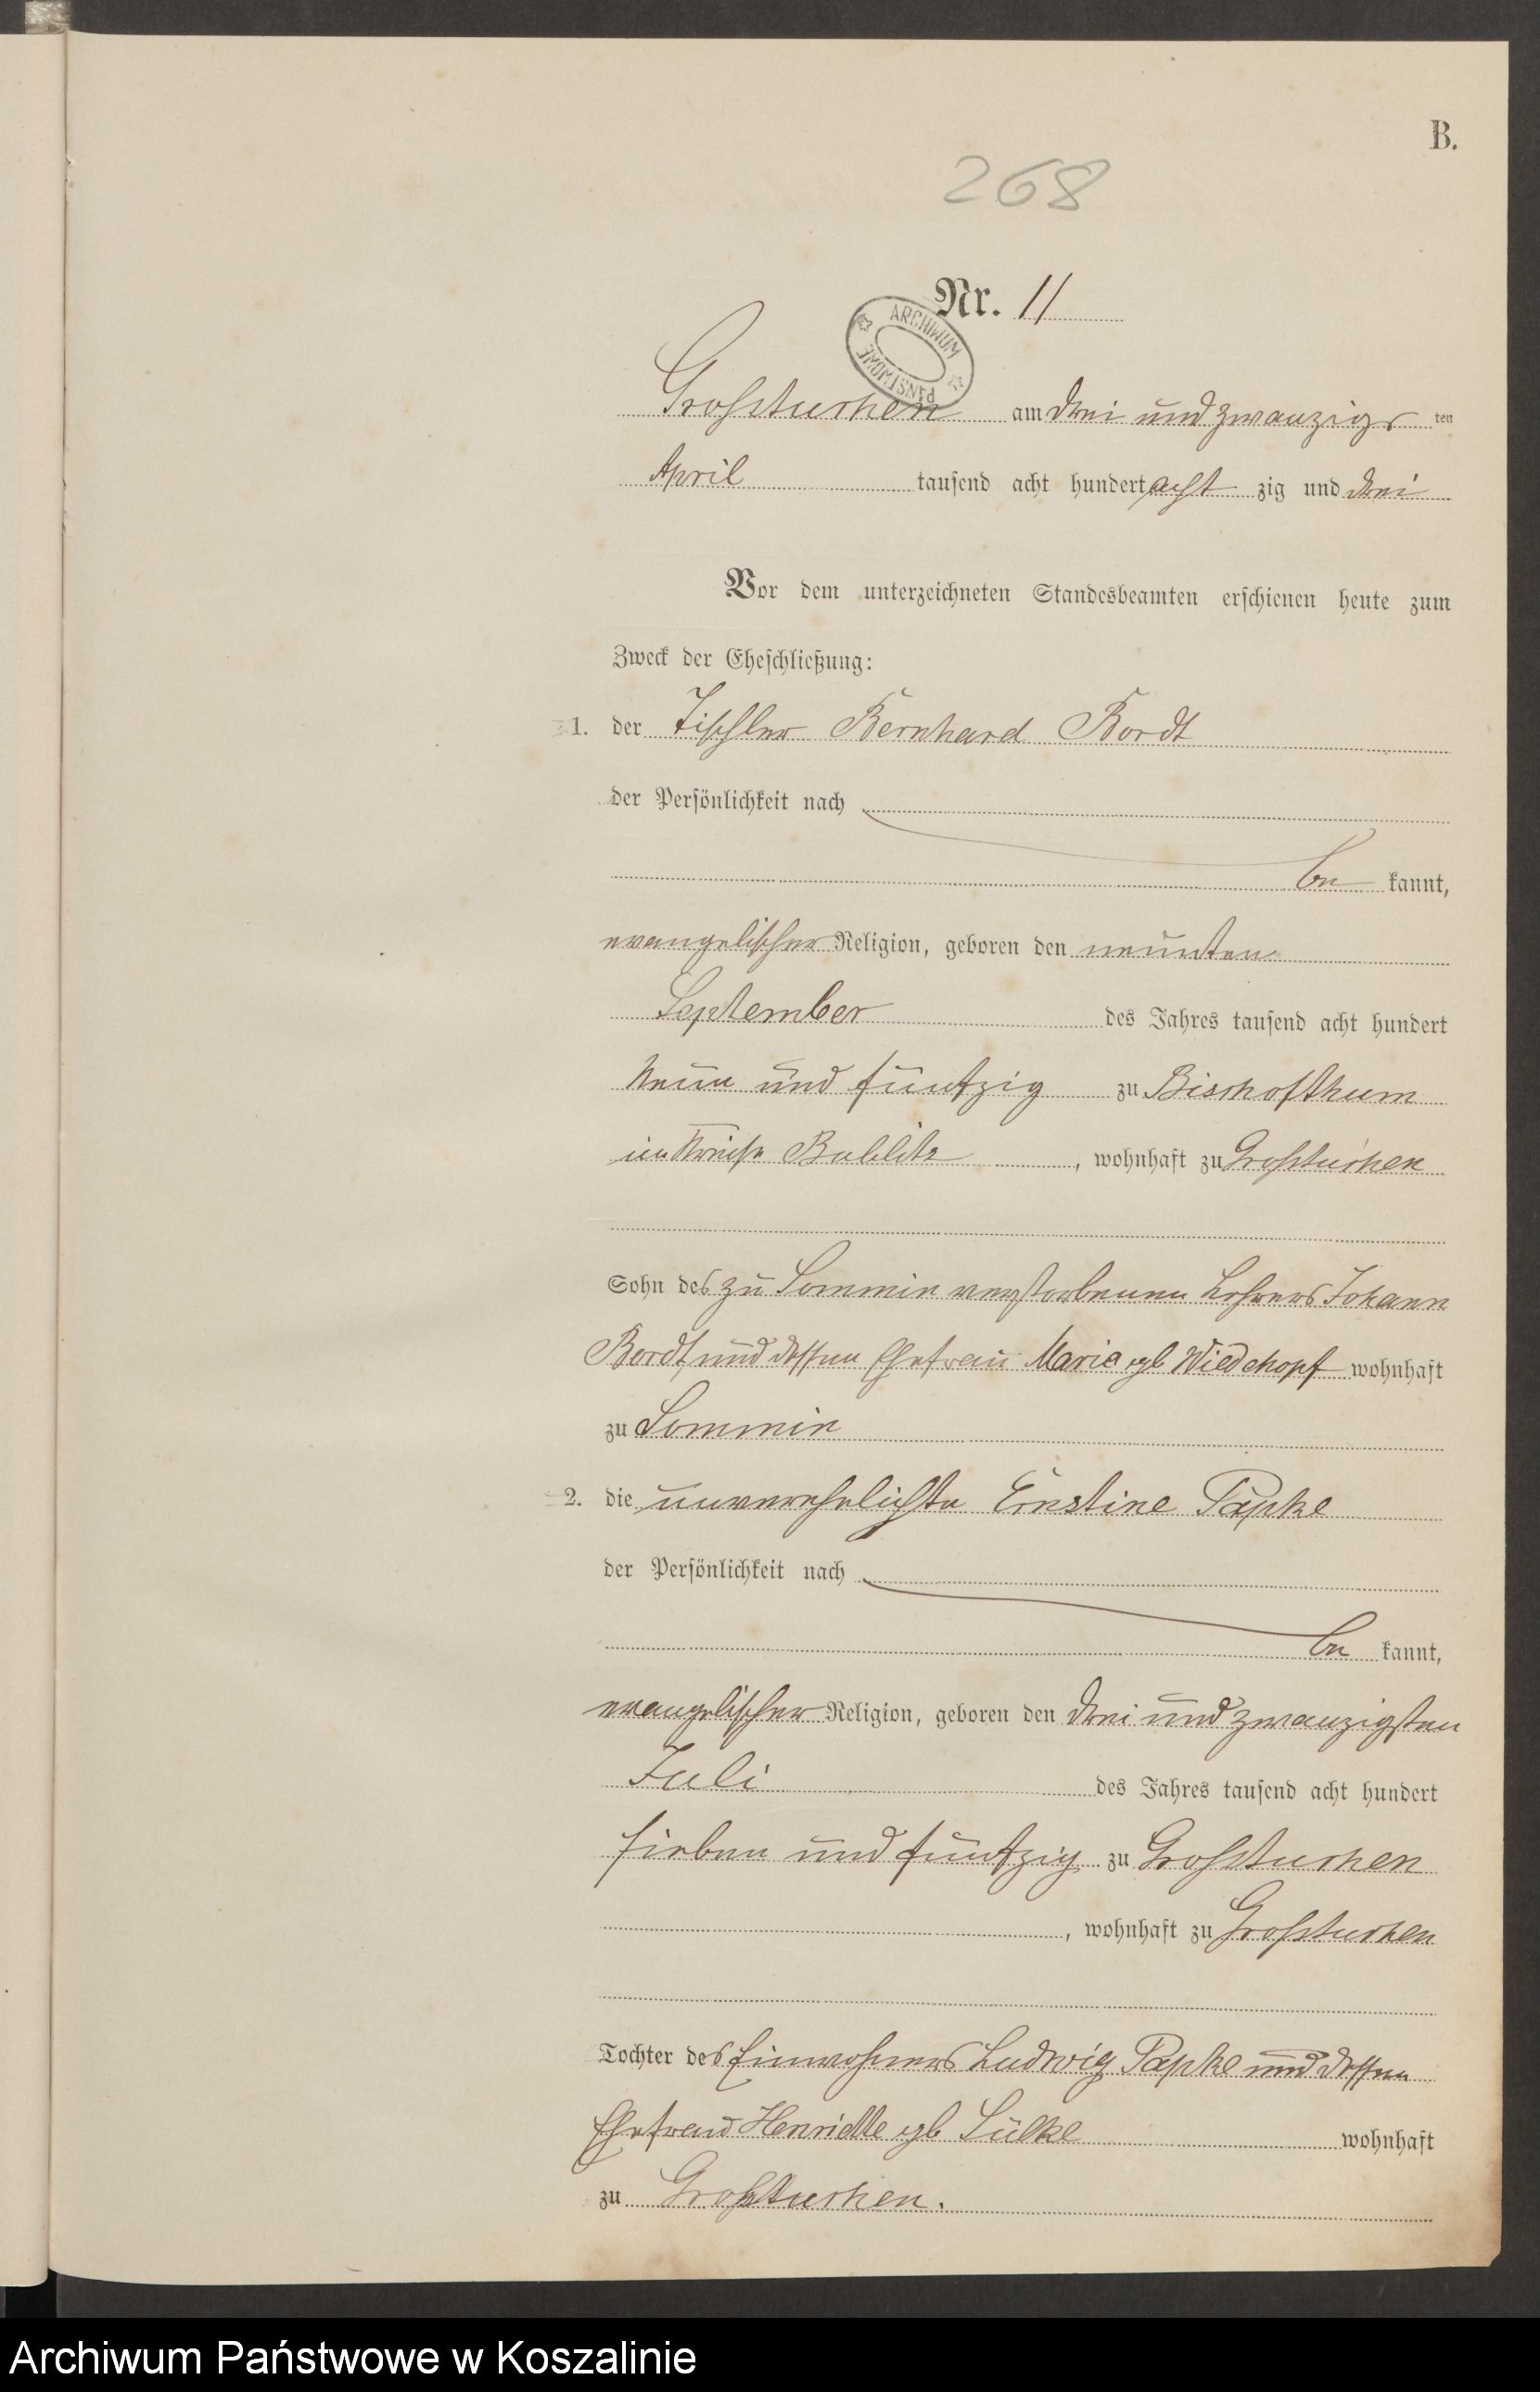 B.
268
Nr. 11
ARCHIWUM PAŃSTWOWE
Großtuchen am drei und zwanzigs ten
April tausend acht hundert acht zig und drei
Vor dem unterzeichneten Standesbeamten erschienen heute zum
Zweck der Eheschließung:
1. der Tischler Bernhard Bordt
der Persönlichkeit nach
be kannt,
evangelischer Religion, geboren den neunten
September des Jahres tausend acht hundert
neun und fünfzig zu Bischofthum
im Kreise Bublitz, wohnhaft zu Großtuchen
Sohn des zu Sommin verstorbenen Lehrers Johann
Bordt und dessen Ehefrau Marie geb Wiedehopf wohnhaft
zu Sommin
2. die unverehelichte Ernstine Papke
der Persönlichkeit nach
be kannt,
evangelischer Religion, geboren den drei und zwanzigsten
Juli des Jahres tausend acht hundert
sieben und fünfzig zu Großtuchen
, wohnhaft zu Großtuchen
Tochter des Einwohners Ludwig Papke und dessen
Ehefrau Henriette geb Lülke wohnhaft
zu Großtuchen.
Archiwum Państwowe w Koszalinie